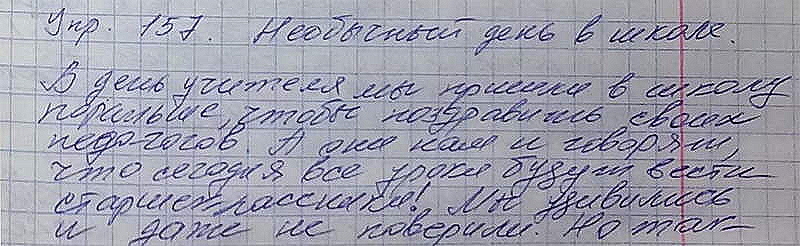 Упр. 157. Необычный день в школе.
В день учителя мы пришли в школу
пораньше, чтобы поздравить своих
педагогов. А они нам и говорят,
что сегодня все уроки будут вести
старшеклассники! Мы удивились
и даже не поверили. Но так-